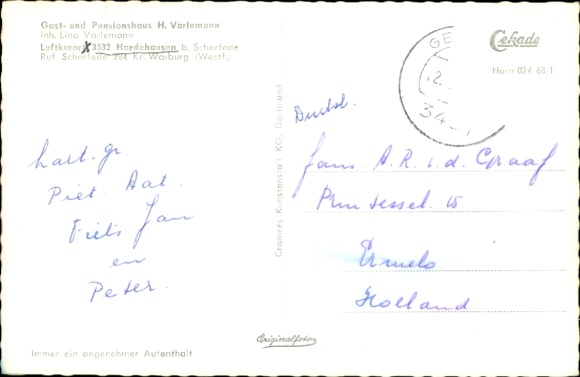 Gast- und Pensionshaus H. Varlemann
Inh. Lina Varlemann
Luftkurort 3532 Hardehausen, b. Scherfede
Ruf Scherfede 284 Kr. Warburg (Westf.)
Cekade
Harn 024 68/1
GE
2
34
Cramers Kunstanstalt KG, Dortmund
Duitsl.
Fam. A.R. v.d. Graaf
15
Ermelo
Holland
hart. gr.
Piet Aat
Fiets Jan
en
Peter.
Originalfoto
Immer ein angenehmer Aufenthalt